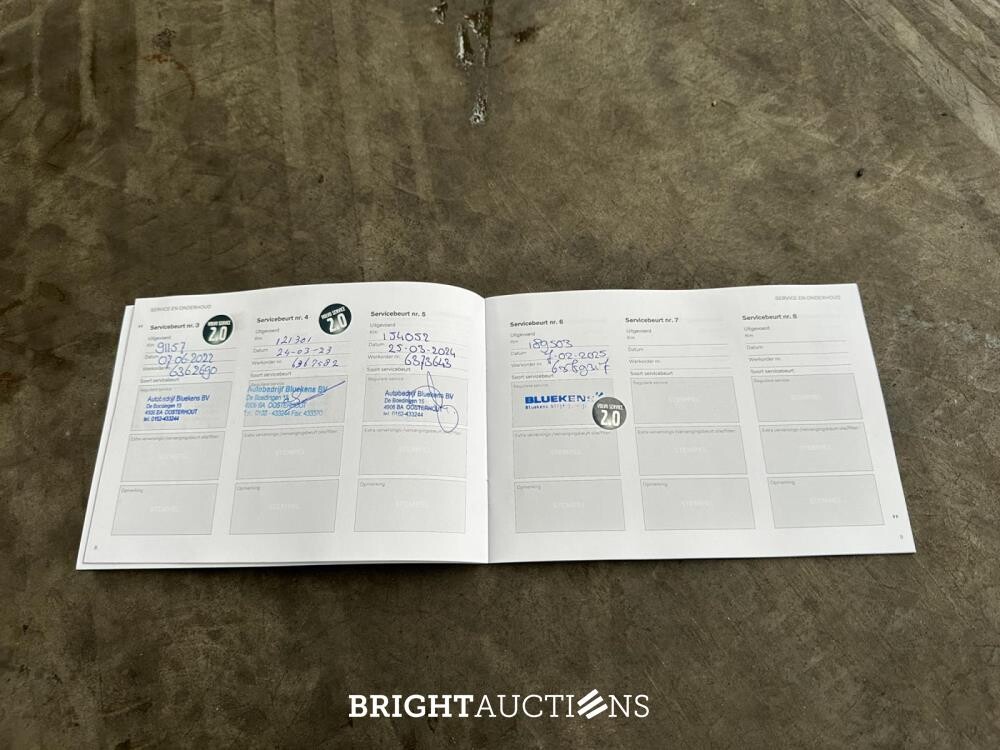 SERVICE EN ONDERHOUD
Servicebeurt nr. 3
VOLVO SERVICE
2.0
Uitgevoerd
Km 91157
Datum 07.06.2022
Werkorder nr. 6362690
Soort servicebeurt
Reguliere service
Autobedrijf Bluekens BV
De Boedingen 15
4906 BA OOSTERHOUT
tel. 0162-433244
Extra verversings-/vervangingsbeurt olie/filter:
STEMPEL
Opmerking
STEMPEL
8
Servicebeurt nr. 4
VOLVO SERVICE
2.0
Uitgevoerd
Km 121301
Datum 24-03-23
Werkorder nr.
Soort servicebeurt
Reguliere service
Autobedrijf Bluekens BV
De Boedingen 15
4906 BA OOSTERHOUT
Extra verversings-/vervangingsbeurt olie/filter:
STEMPEL
Opmerking
STEMPEL
Servicebeurt nr. 5
Uitgevoerd
Km 154052
Datum 25-03-2024
Werkorder nr. 6373643
Soort servicebeurt
Reguliere service
Autobedrijf Bluekens BV
De Boedingen 15
4906 BA OOSTERHOUT
tel. 0162-433244
Extra verversings-/vervangingsbeurt olie/filter:
STEMPEL
Opmerking
STEMPEL
SERVICE EN ONDERHOUD
Servicebeurt nr. 6
Uitgevoerd
Km 189503
Datum
Werkorder nr.
Soort servicebeurt
BLUEKENS
Bluekens
VOLVO SERVICE
2.0
Extra verversings-/vervangingsbeurt olie/filter:
STEMPEL
Opmerking
STEMPEL
Servicebeurt nr. 7
Uitgevoerd
Km
Datum
Werkorder nr.
Soort servicebeurt
Reguliere service
STEMPEL
Extra verversings-/vervangingsbeurt olie/filter:
STEMPEL
Opmerking
STEMPEL
Servicebeurt nr. 8
Uitgevoerd
Km
Datum
Werkorder nr.
Soort servicebeurt
Reguliere service
STEMPEL
Extra verversings-/vervangingsbeurt olie/filter:
STEMPEL
Opmerking
STEMPEL
9
BRIGHTAUCTIONS